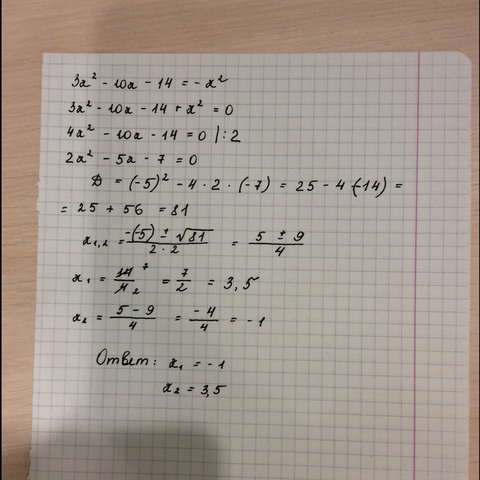 3x² - 10x - 14 = - x²
3x² - 10x - 14 + x² = 0
4x² - 10x - 14 = 0 |:2
2x² - 5x - 7 = 0
D = (-5)² - 4 · 2 · (-7) = 25 - 4 (-14) =
= 25 + 56 = 81
x₁,₂ = (-(-5) ± √81)/(2 · 2) = (5 ± 9)/4
x₁ = 14/4 7/2 = 7/2 = 3,5
x₂ = (5 - 9)/4 = (-4)/4 = -1
Ответ: x₁ = -1
x₂ = 3,5